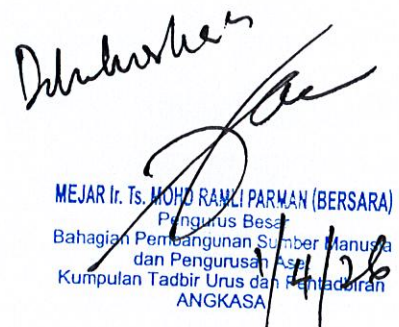 Diluluskan
MEJAR Ir. Ts. MOHD RAMLI PARMAN (BERSARA)
Pengurus Besar
Bahagian Pembangunan Sumber Manusia
dan Pengurusan Aset
Kumpulan Tadbir Urus dan Pentadbiran
ANGKASA
1/4/26